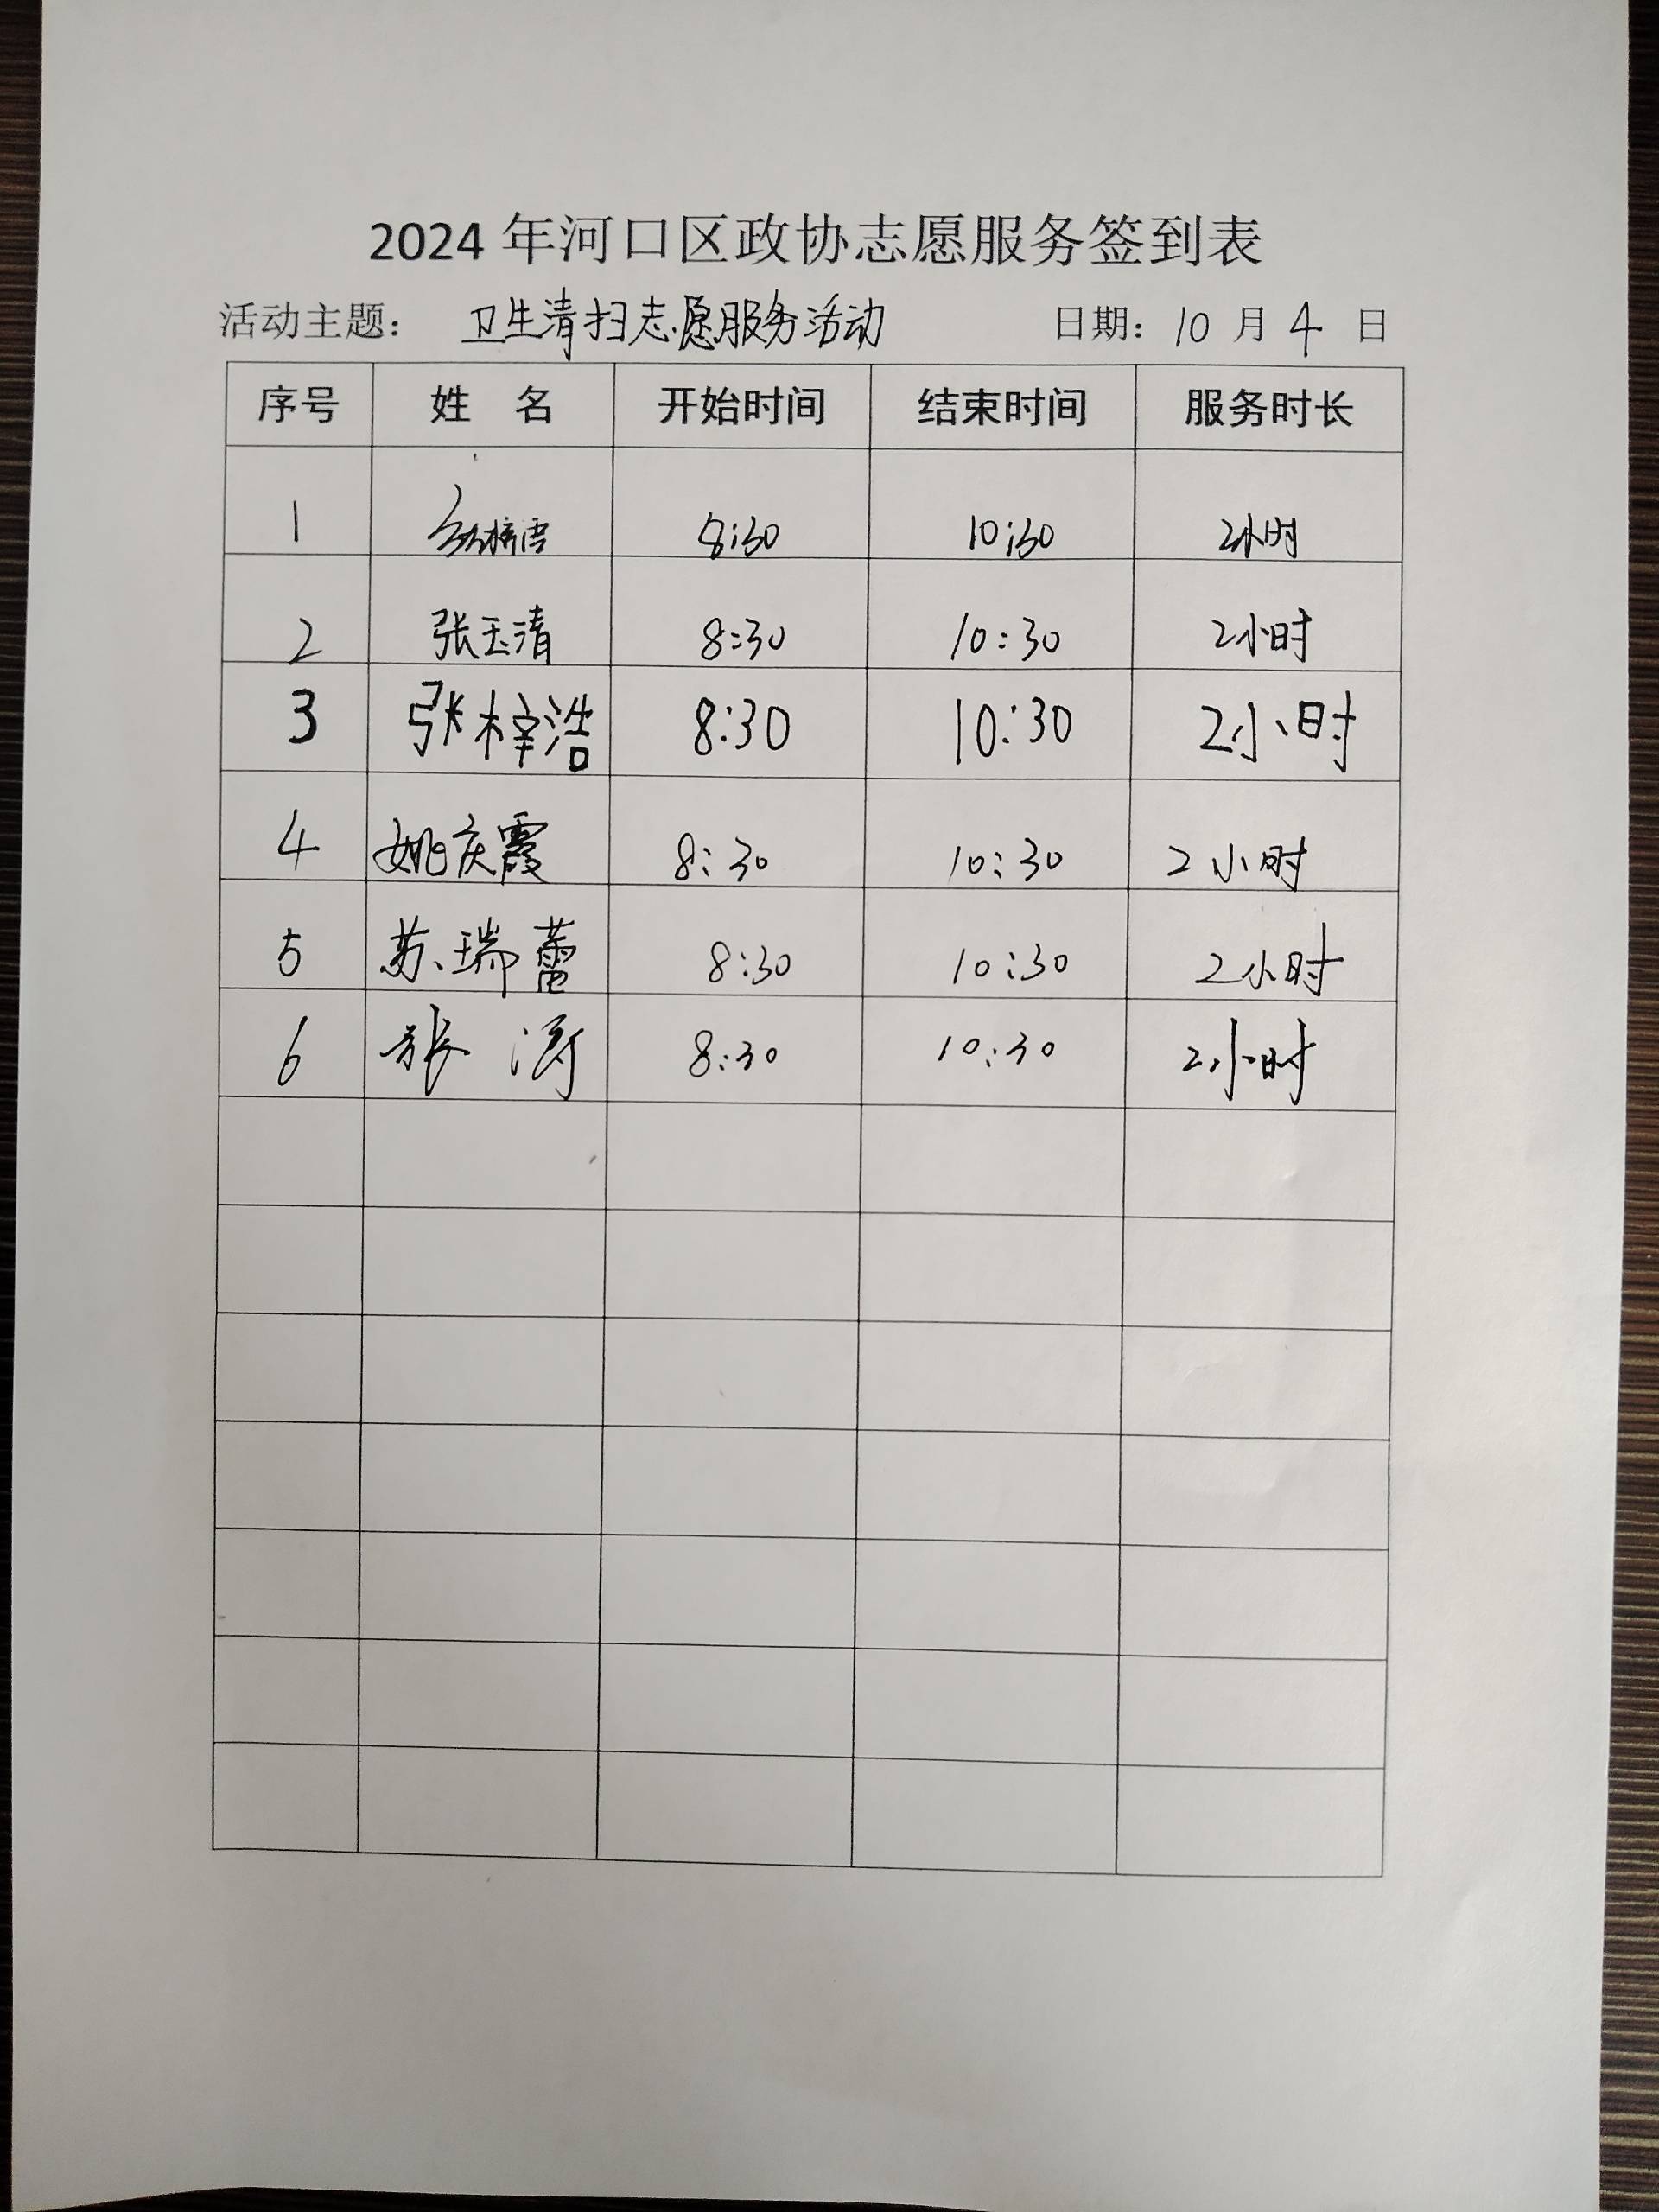 2024 年河口区政协志愿服务签到表
活动主题： 卫生清扫志愿服务活动 日期：10 月 4 日
序号 姓 名 开始时间 结束时间 服务时长
1 8:30 10:30 2小时
2 张玉清 8:30 10:30 2小时
3 张梓浩 8:30 10:30 2小时
4 姚庆霞 8:30 10:30 2小时
5 苏瑞蕾 8:30 10:30 2小时
6 张 涛 8:30 10:30 2小时